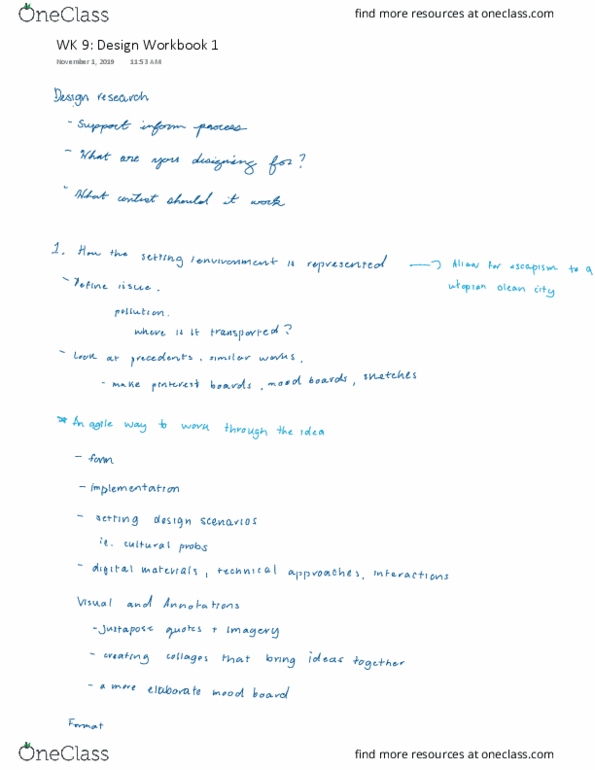 OneClass
find more resources at oneclass.com
WK 9: Design Workbook 1
November 1, 2019 11:53 AM
Design research
- Support inform process
- What are you designing for?
- What context should it work
1. How the setting / environment is represented → Allow for escapism to a
utopian clean city
- Define issue.
pollution.
where is it transported?
- Look at precedents, similar works.
- make pinterest boards, mood boards, sketches
* An agile way to work through the idea
- form
- implementation
- setting design scenarios
ie. cultural probs
- digital materials, technical approaches, interactions
Visual and Annotations
- Juxtapose quotes + imagery
- creating collages that bring ideas together
- a more elaborate mood board
Format
OneClass
find more resources at oneclass.com